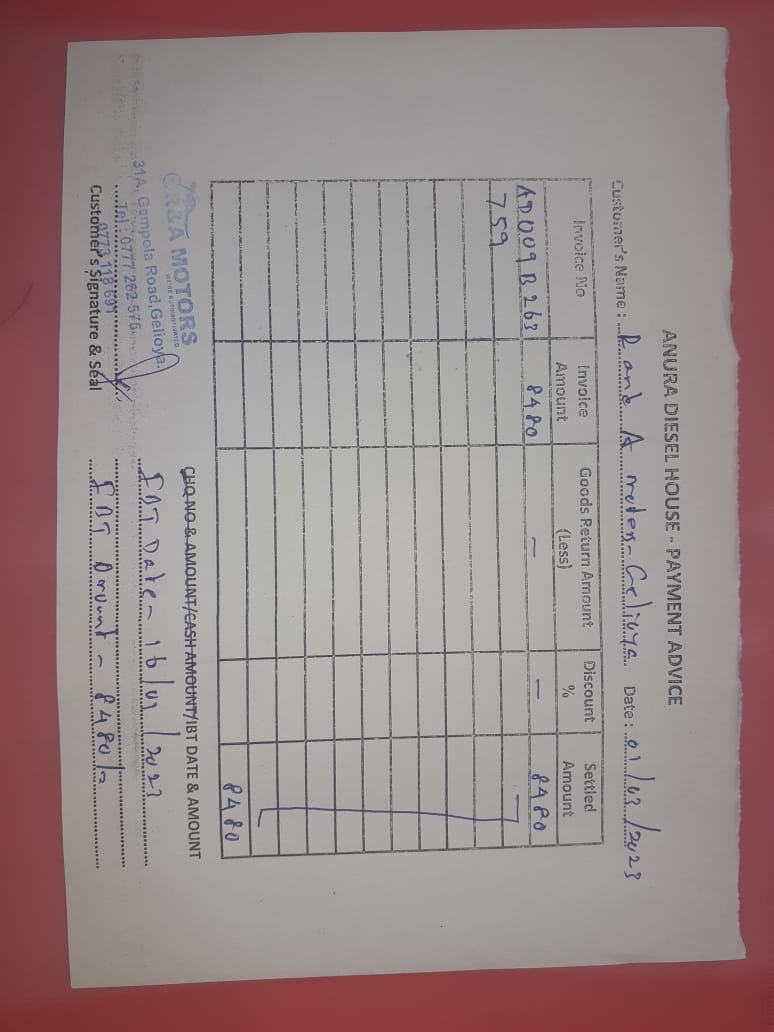 ANURA DIESEL HOUSE - PAYMENT ADVICE
Customer's Name : R and A motors - Gelioya Date : 01/03/2023
Invoice No Invoice Amount Goods Return Amount (Less) Discount % Settled Amount
AD009B263 8480 — — 8480
759
8480
CHQ NO & AMOUNT/CASH AMOUNT/IBT DATE & AMOUNT
R&A MOTORS
31A, Gampola Road, Gelioya.
Tel : 0777 262 575
0773 118 691
Customer's Signature & Seal
IBT Date - 16/01/2023
IBT Amount - 8480/=